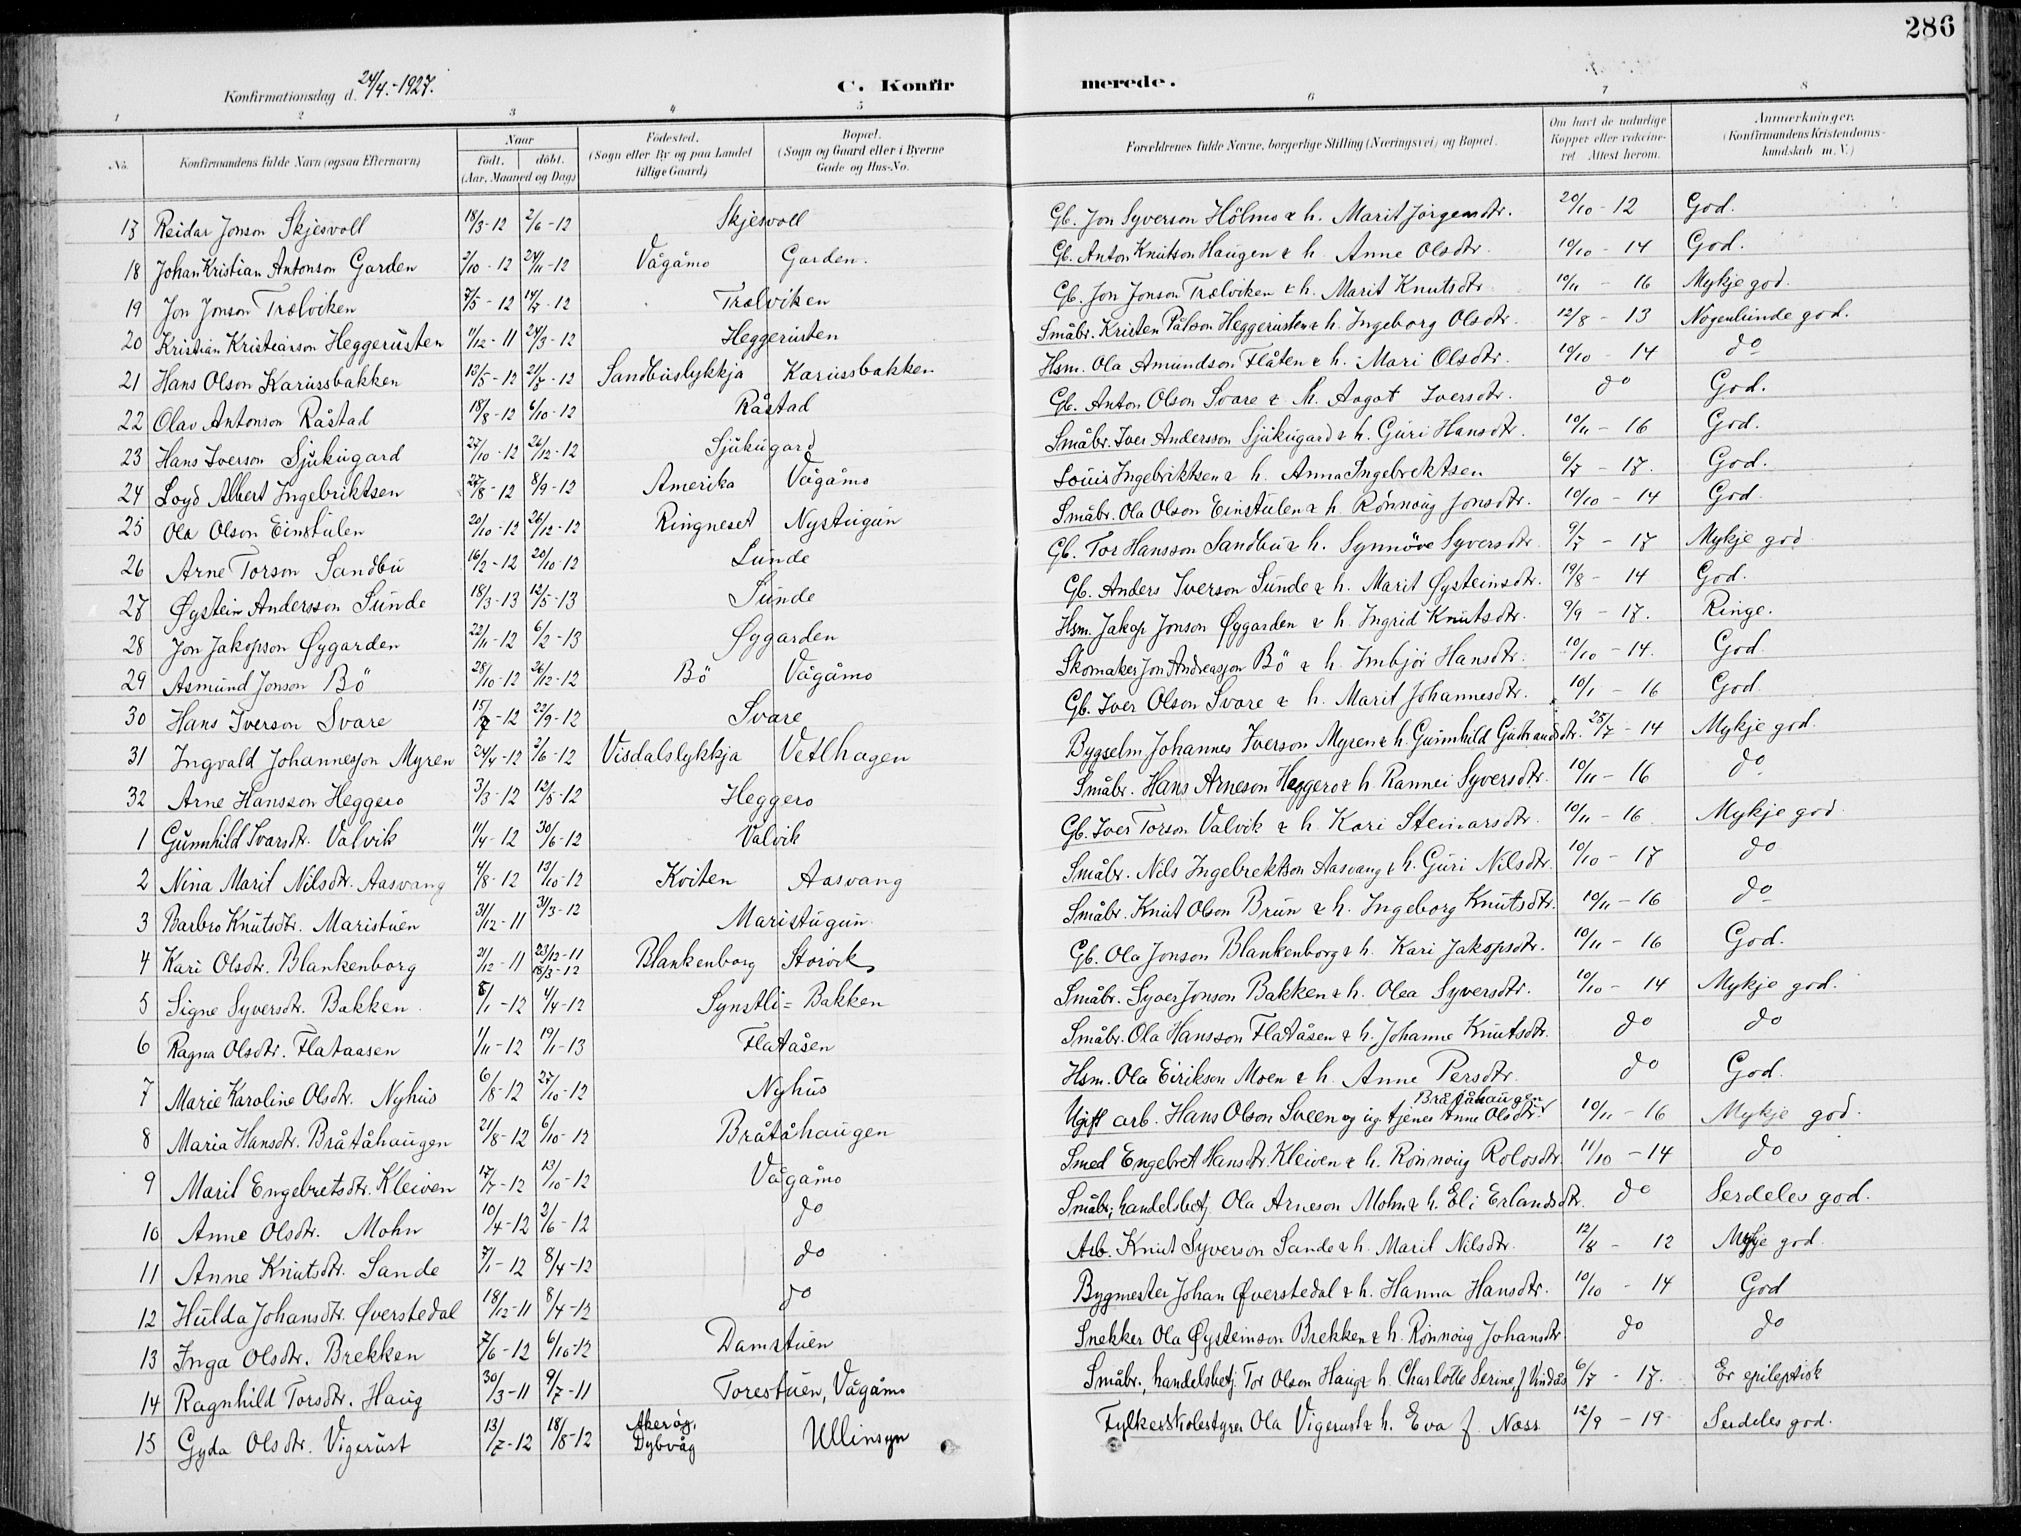 286
Konfirmationsdag d. 24/4.-1927.
C. Konfirmerede.
1 2 3 4 5 6 7 8
No. Konfirmandens fulde Navn (ogsaa Efternavn) Naar født. døbt. (Aar, Maaned og Dag) Fødested. (Sogn eller By og paa Landet tillige Gaard) Bopæl. (Sogn og Gaard eller i Byerne Gade og Hus-No. Forældrenes fulde Navne, borgerlige Stilling (Næringsvei) og Bopæl. Om havt de naturlige Kopper eller vakcineret. Attest herom. Anmærkninger. (Konfirmandens Kristendomskundskab m. V.)
17 Reidar Jonson Skjesvoll 18/3-12 2/6-12 Skjesvoll Gb. Jon Syverson Hölmo & h. Marit Jörgensdtr. 20/10-12 God.
18 Johan Kristian Antonson Garden 2/10-12 24/11-12 Vågåmo Garden. Gb. Anton Knutson Haugen & h. Anne Olsdtr. 10/10-14 God.
19 Jon Jonson Trælviken 7/5-12 14/7-12 Trælviken Gb. Jon Jonson Trælviken & h. Marit Knutsdtr. 10/11-16 Mykje god.
20 Kristian Kristianson Heggerusten 11/12-11 24/3-12 Heggerusten Småbr. Kristen Pålson Heggerusten & h. Ingeborg Olsdtr. 12/8-13 Nogenlunde god.
21 Hans Olson Karussbakken 13/5-12 21/7-12 Sandbuslykkja Karussbakken Hsm. Ola Amundson Flåten & h. Mari Olsdtr. 10/10-14 do
22 Olav Antonson Råstad 18/8-12 6/10-12 Råstad Gb. Anton Olson Svare & M. Aagot Iversdtr. do God.
23 Hans Iverson Sjukugard 27/10-12 26/12-12 Sjukugard Småbr. Iver Andersson Sjukugard & h. Guri Hansdtr. 10/11-16 God.
24 Loyd Albert Ingebriktsen 27/8-12 8/9-12 Amerika Vågåmo Louis Ingebriktsen & h. Anna Ingebrektsen 6/7-17. God.
25 Ola Olson Einstulen 20/10-12 26/12-12 Ringneset Nystugun Småbr. Ola Olson Einstulen & h. Rønnoug Jonsdtr. 10/10-14 God
26 Arne Torson Sandbu 16/2-12 20/10-12 Lunde Gb. Tor Hansson Sandbu & h. Synnöve Syversdtr. 9/7-17 Mykje god
27 Øystein Andersson Sunde 18/3-13 12/5-13 Sunde Gb. Anders Iverson Sunde & h. Marit Øysteinsdtr. 19/8-14 God.
28 Jon Jakopson Øygarden 22/11-12 6/2-13 Øygarden Hsm. Jakop Jonson Øygarden & h. Ingrid Knutsdtr. 9/9-17. Ringe.
29 Asmund Jonson Bö 28/10-12 26/12-12 Bö Vågåmo Skomaker Jon Andreasson Bö & h. Imbjör Hansdtr. 10/10-14. God
30 Hans Iverson Svare 15/7-12 22/9-12 Svare Gb. Iver Olson Svare & h. Marit Johannesdtr. 10/1-16 God
31 Ingvald Johannesson Myren 24/4-12 2/6-12 Visdalslykkja Vetlhagen Bygselm. Johannes Iverson Myren & h. Gunnhild Gutrandsdtr. 25/7-14 Mykje god
32 Arne Hansson Heggero 3/3-12 12/5-12 Heggero Småbr. Hans Arneson Heggero & h. Rannei Syversdtr. 10/11-16 do
1 Gunnhild Ivarsdtr. Valvik 11/4-12 30/6-12 Valvik Gb. Iver Torson Valvik & h. Kari Steinarsdtr. 10/11-16 Mykje god
2 Nina Marit Nilsdtr. Aasvang 4/8-12 13/10-12 Kviten Aasvang Småbr. Nils Ingebrektson Aasvang & h. Guri Nilsdtr. 10/10-17 do
3 Barbro Knutsdtr. Maristuen 31/12-11 31/3-12 Maristugun Småbr. Knut Olson Brun & h. Ingeborg Knutsdtr. 10/11-16 do
4 Kari Olsdtr. Blankenborg 21/12-11 23/12-11 18/3-12 Blankenborg Storvik Gb. Ola Jonson Blankenborg & h. Kari Jakopsdtr. 10/11-16 God.
5 Signe Syversdtr. Bakken 8/1-12 4/4-12 Synstli= Bakken Småbr. Syver Jonson Bakken & h. Olea Syversdtr. 10/10-14 Mykje god.
6 Ragna Olsdtr. Flataasen 1/11-12 19/1-13 Flatåsen Småbr. Ola Hansson Flatåsen & h. Johanne Knutsdtr. do do
7 Marie Karoline Olsdtr. Nyhus 6/8-12 27/10-12 Nyhus Hsm. Ola Eirikson Moen & h. Anne Persdtr. do God.
8 Maria Hansdtr. Bråtåhaugen 21/8-12 6/10-12 Bråtåhaugen Ugift arb. Hans Olson Sveen og ug. tjener Anne Olsdtr. Bråtåhaugen 10/11-16 Mykje god.
9 Marit Engebretsdtr. Kleiven 17/7-12 13/10-12 Vågåmo Smed Engebret Hansdtr. Kleiven & h. Rønnoug Rolvsdtr. 11/10-14 do
10 Anne Olsdtr. Mohn 10/4-12 2/6-12 do Småbr., handelsbetj. Ola Arneson Mohn & h. Eli Erlandsdtr. do Serdeles god.
11 Anne Knutsdtr. Sande 7/1-12 8/4-12 do Arb. Knut Syverson Sande & h. Marit Nilsdtr. 12/8-12 Mykje god.
12 Hulda Johansdtr. Øverstedal 18/12-11 8/4-12 do Bygmester Johan Øverstedal & h. Hanna Hansdtr. 10/10-14 God
13 Inga Olsdtr. Brekken 7/6-12 6/10-12 Damstuen Snekker Ola Øysteinson Brekken & h. Rønnoug Johansdtr. do do
14 Ragnhild Torsdtr. Haug 30/3-11 9/7-11 Torestuen, Vågåmo Småbr., handelsbetj. Tor Olson Haug & h. Charlotte Serine f. Vindås 6/7-17. Er epileptisk
15 Gyda Olsdtr. Vigerust 13/7-12 18/8-12 Akerøy, Dybvåg Ullinsyn Fylkesskolestyrer Ola Vigerust & h. Eva f. Næss 12/9-19 Serdeles god.